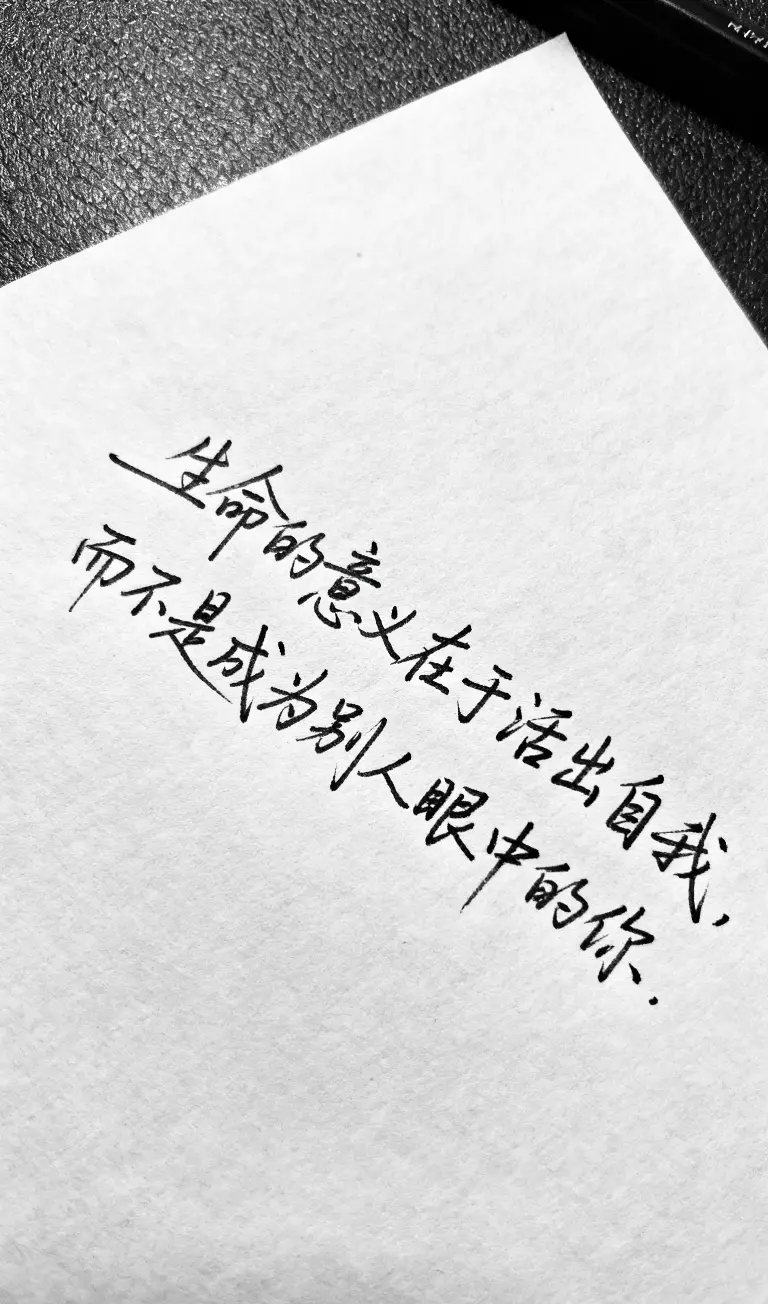 生命的意义在于活出自我,
而不是成为别人眼中的你.